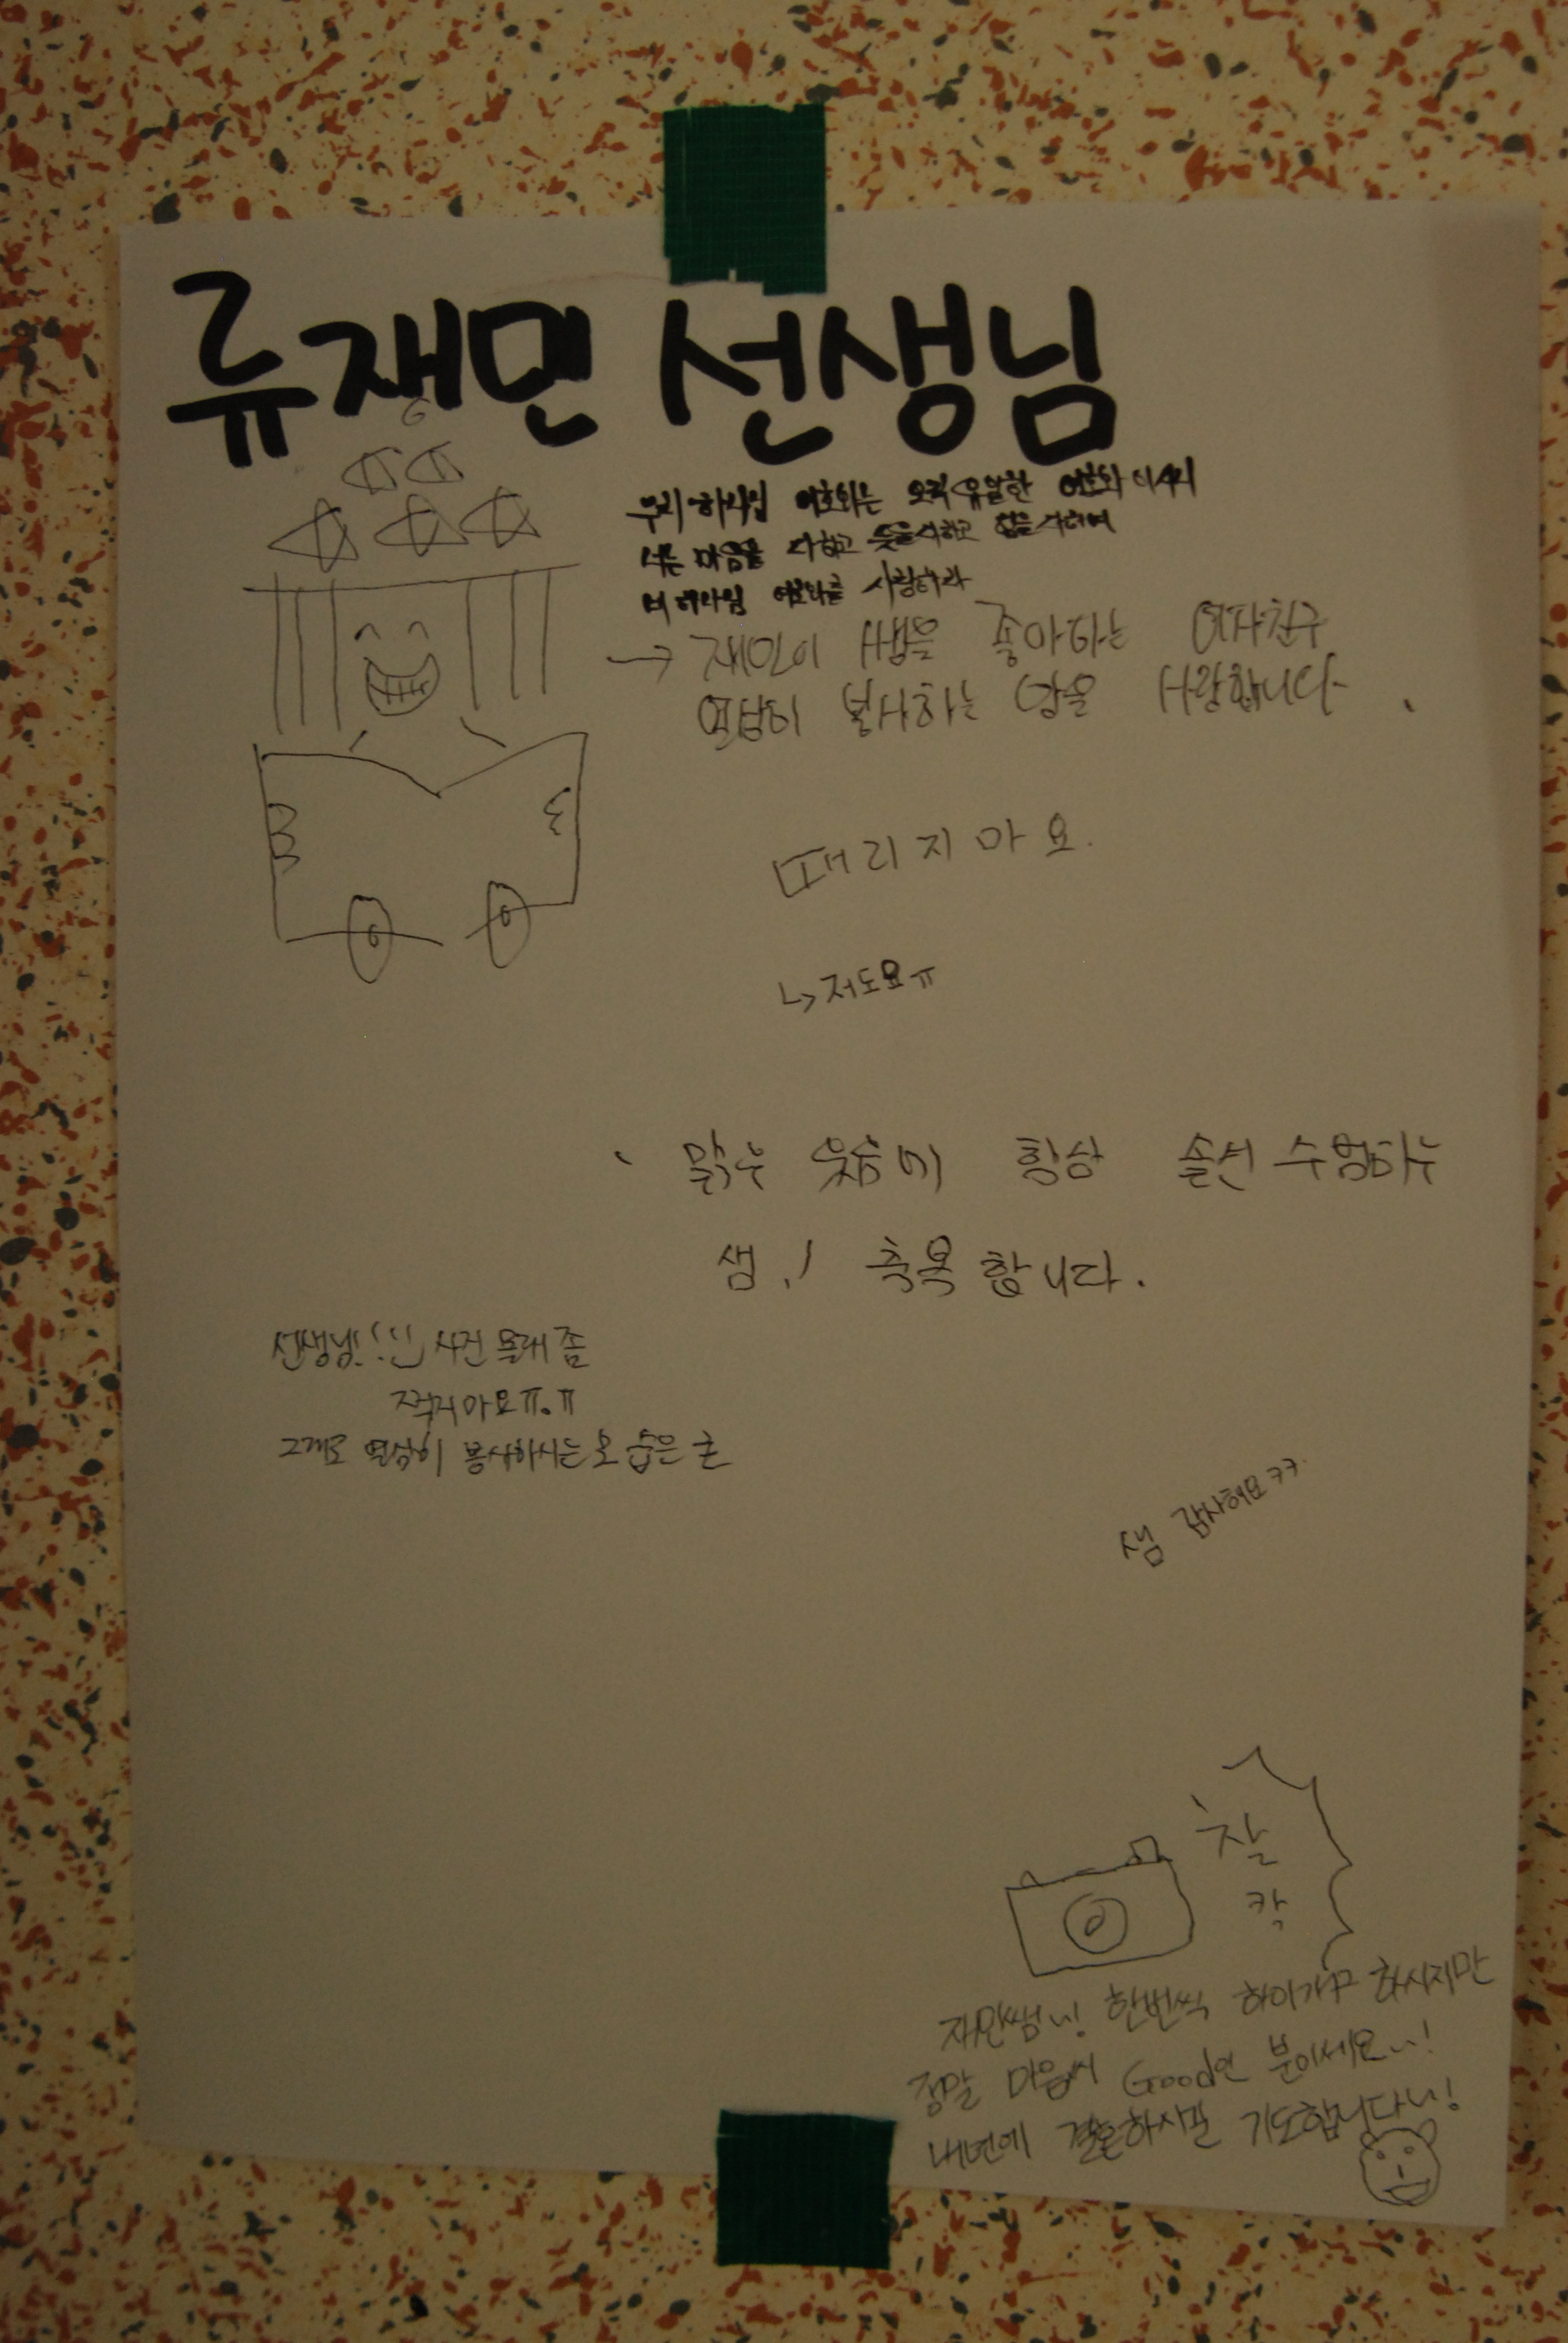 류재민 선생님
우리 하나님 여호와는 오직 유일한 여호와이시니
너는 마음을 다하고 뜻을 다하고 힘을 다하여
네 하나님 여호와를 사랑하라
→ 재민이 쌤을 좋아하는 여자친구
열심히 봉사하는 사랑합니다
때리지마요.
↳저도요ㅠ
맑은 웃음에 항상 솔선수범하는
샘! 축복합니다.
선생님! 사진 몰래 좀
찍지마요ㅠ.ㅠ
그래도 열심히 봉사하시는 모습은 굳
샘 감사해요ㅋㅋ
찰
칵
재민쌤! 한번씩 하시지만
정말 마음씨 Good인 분이세요!
내년에 결혼하시길 기도합니다!